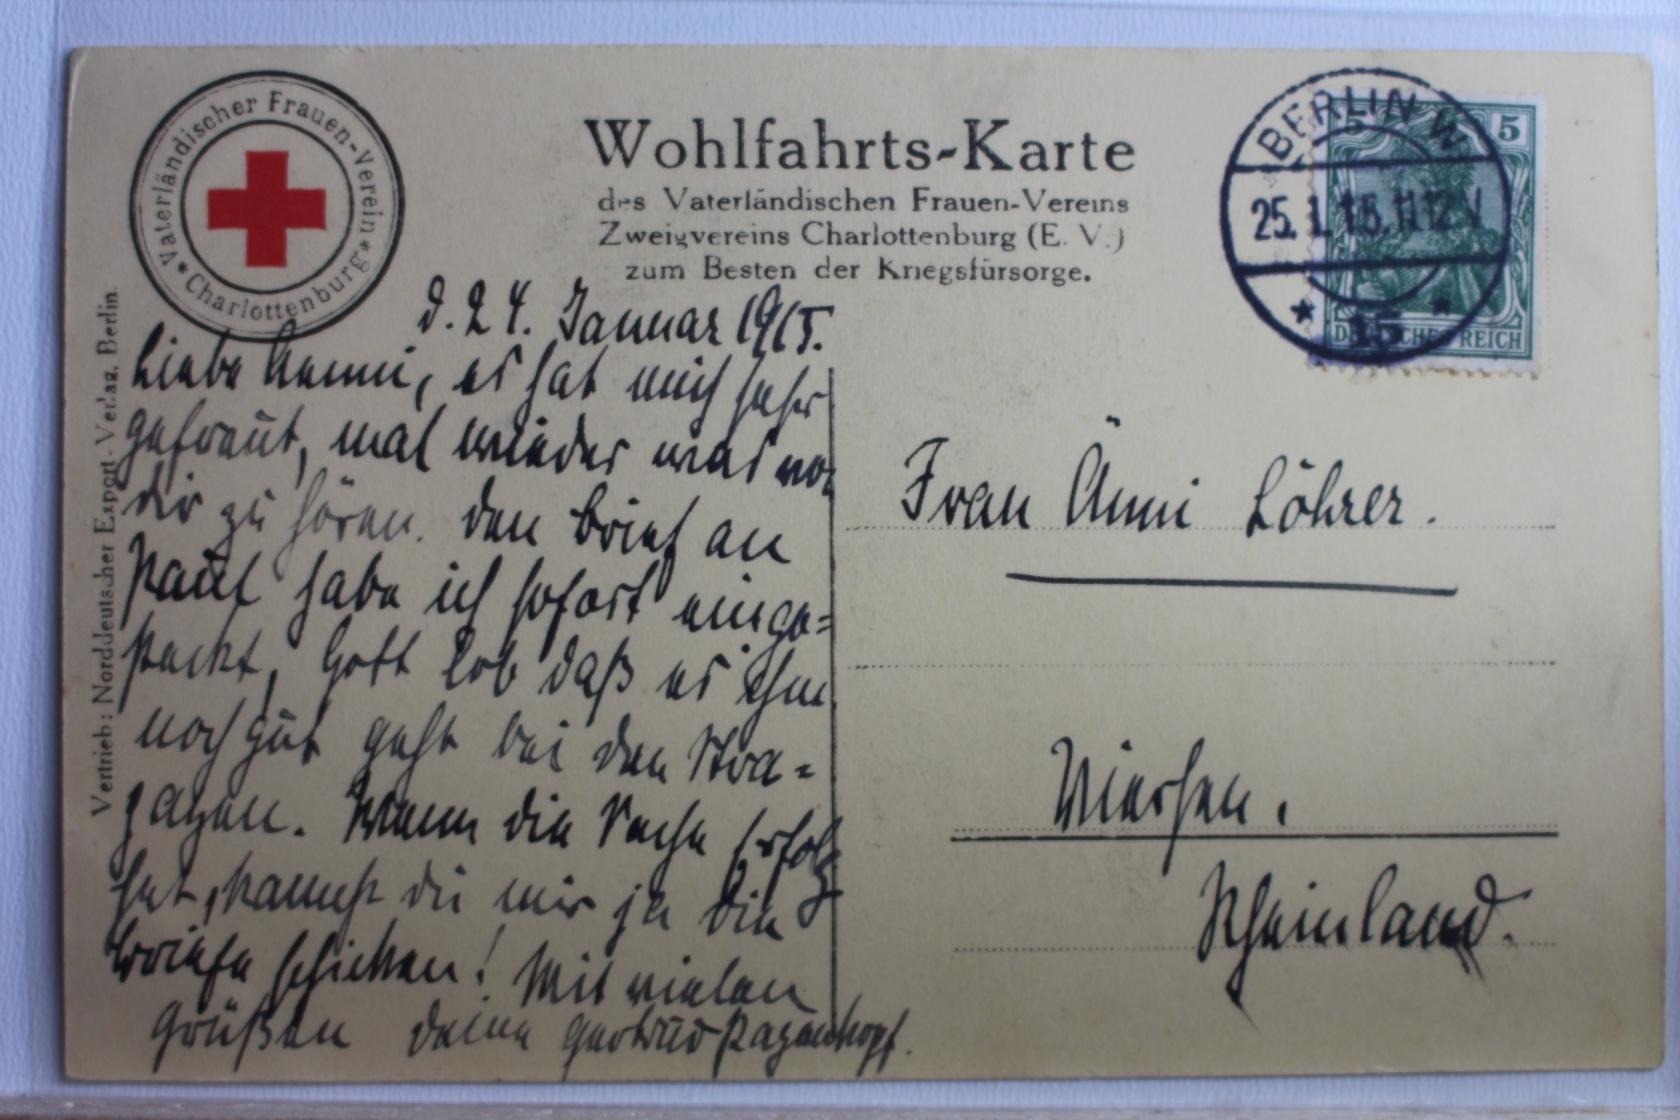 Vaterländischer Frauen-Verein
* Charlottenburg *
Wohlfahrts-Karte
des Vaterländischen Frauen-Vereins
Zweigvereins Charlottenburg (E. V.)
zum Besten der Kriegsfürsorge.
BERLIN W
25.1.15.11-12 V
* 15 *
5
DEUTSCHES REICH
Vertrieb: Norddeutscher Export-Verlag, Berlin.
d. 24. Januar 1915.
Liebe Aenni, es hat mich sehr
gefreut, mal wieder was von
dir zu hören. Den Brief an
Paul habe ich sofort einge=
packt, Gott Lob daß es ihm
noch gut geht bei den Stra=
pazen. Wenn die Sache Erfolg
hat, kannst du mir ja die
Briefe schicken! Mit vielen
Grüßen deine Gertrud Pagenkopf.
Frau Änni Löhrer.
Viersen.
Rheinland.